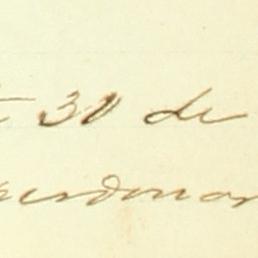 30 de
perdonar